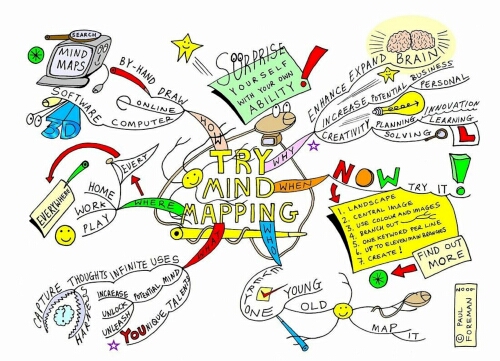 SEARCH
MIND
MAPS
BY-HAND
DRAW
ONLINE
COMPUTER
SOFTWARE
3D
HOW
SURPRISE
YOURSELF
WITH YOUR OWN
ABILITY
!
ENHANCE EXPAND BRAIN
INCREASE POTENTIAL
BUSINESS
PERSONAL
CREATIVITY
PLANNING
INNOVATION
LEARNING
SOLVING
L
WHY
TRY
MIND
MAPPING
WHEN
NOW
TRY IT
!
1. LANDSCAPE
2. CENTRAL IMAGE
3. USE COLOUR AND IMAGES
4. BRANCH OUT
5. ONE KEYWORD PER LINE
6. UP TO ELEVEN MAIN BRANCHES
7. CREATE!
FIND OUT
MORE
WHERE
EVERY
EVERYWHERE
HOME
WORK
PLAY
CAPTURE
THOUGHTS
INFINITE USES
HARNESS
INCREASE
UNLOCK
UNLEASH
POTENTIAL
MIND
YOUNIQUE TALENT
WHO
EVERYONE
YOUNG
OLD
MAP
IT
© PAUL
FOREMAN